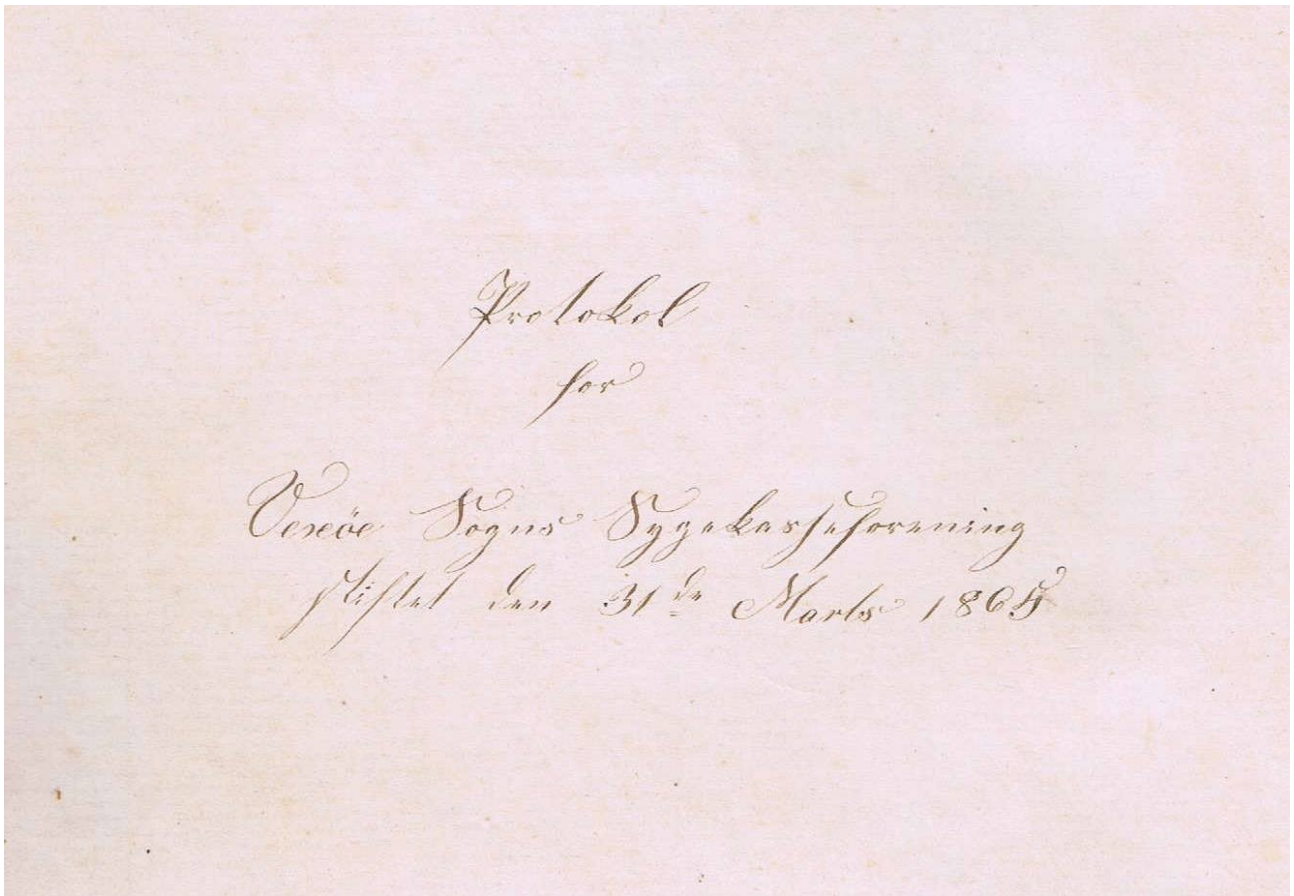 Protokol
for
Venöe Sogns Sygekasseforening
stiftet den 31de Marts 1865